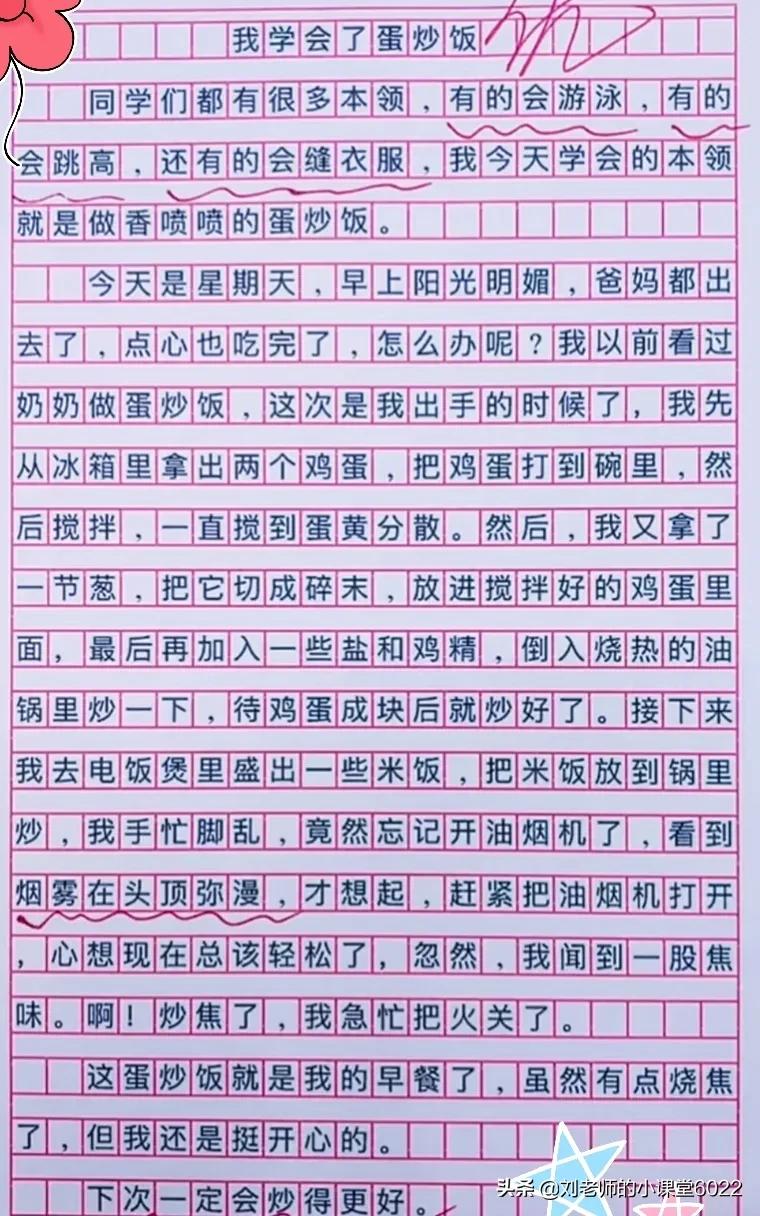 我学会了蛋炒饭
同学们都有很多本领，有的会游泳，有的
会跳高，还有的会缝衣服，我今天学会的本领
就是做香喷喷的蛋炒饭。
今天是星期天，早上阳光明媚，爸妈都出
去了，点心也吃完了，怎么办呢？我以前看过
奶奶做蛋炒饭，这次是我出手的时候了，我先
从冰箱里拿出两个鸡蛋，把鸡蛋打到碗里，然
后搅拌，一直搅到蛋黄分散。然后，我又拿了
一节葱，把它切成碎末，放进搅拌好的鸡蛋里
面，最后再加入一些盐和鸡精，倒入烧热的油
锅里炒一下，待鸡蛋成块后就炒好了。接下来
我去电饭煲里盛出一些米饭，把米饭放到锅里
炒，我手忙脚乱，竟然忘记开油烟机了，看到
烟雾在头顶弥漫，才想起，赶紧把油烟机打开
，心想现在总该轻松了，忽然，我闻到一股焦
味。啊！炒焦了，我急忙把火关了。
这蛋炒饭就是我的早餐了，虽然有点烧焦
了，但我还是挺开心的。
下次一定会炒得更好。
头条 @刘老师的小课堂6022